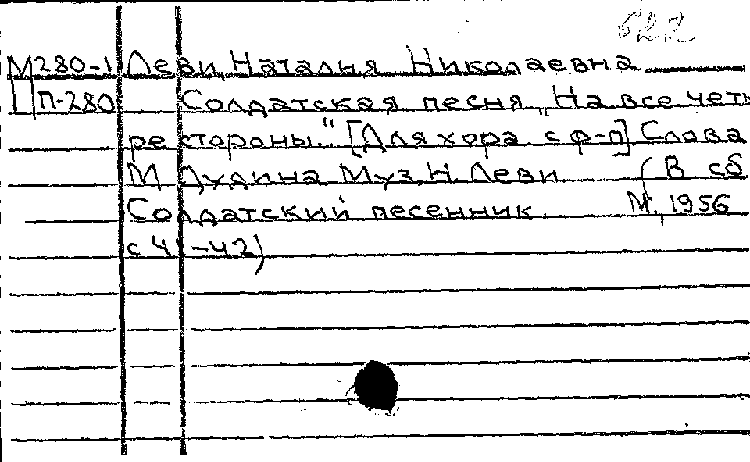 622
М280-1 Леви, Наталья Николаевна
П-280 Солдатская песня „На все четы
ре стороны" [Для хора с ф-п] Слова
М Дудина Муз. Н. Леви (В сб
Солдатский песенник М, 1956
с 41-42)